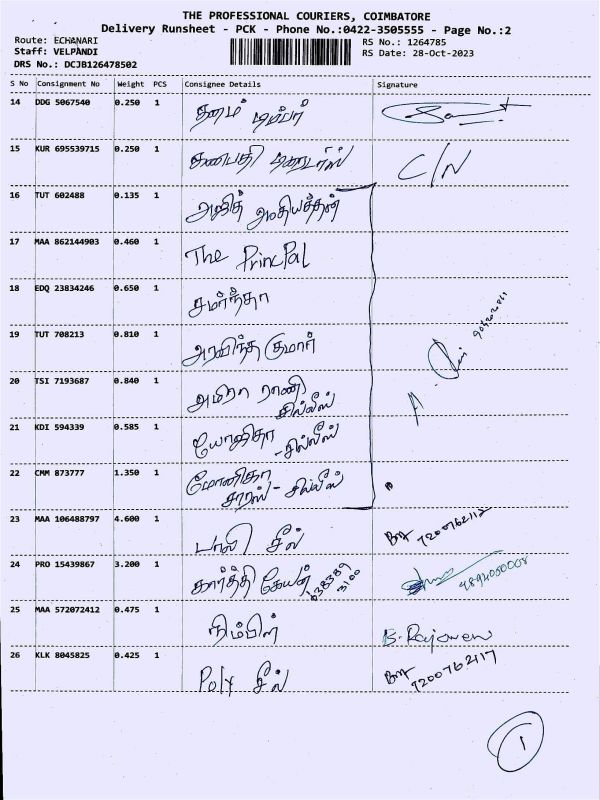 THE PROFESSIONAL COURIERS, COIMBATORE
Delivery Runsheet - PCK - Phone No.:0422-3505555 - Page No.:2
Route: ECHANARI
Staff: VELPANDI
DRS No.: DCJB126478502
RS No.: 1264785
RS Date: 28-Oct-2023
S No Consignment No Weight PCS Consignee Details Signature
14 DDG 5067540 0.250 1 தனம் டிம்பர்
15 KUR 695539715 0.250 1 கணபதி டிரைடர்ஸ் C/N
16 TUT 602488 0.135 1 அஜித்
17 MAA 862144903 0.460 1 The PrincPal
18 EDQ 23834246 0.650 1 சமந்தா
19 TUT 708213 0.810 1 அரவிந்த குமார்
20 TSI 7193687 0.840 1 ராணி
சில்லீஸ்
21 KDI 594339 0.585 1 யோஜிதா
-சில்லீஸ்
22 CMM 873777 1.350 1 மோனிகா
சாரஸ் - சில்லீஸ்
23 MAA 106488797 4.600 1 பாலி சீல்
24 PRO 15439867 3.200 1 கார்த்தி கேயன்
25 MAA 572072412 0.475 1
26 KLK 8045825 0.425 1 Poly சீல் 9200762117
1